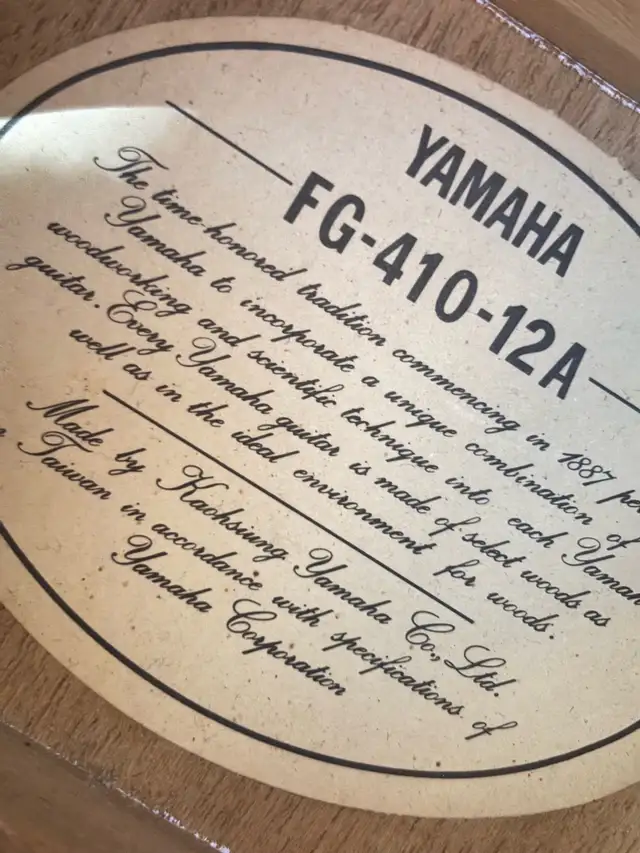 YAMAHA
FG-410-12A
The time-honored tradition commencing in 1887
Yamaha to incorporate a unique combination of
woodworking and scientific technique into each
guitar. Every Yamaha guitar is made of select woods as
well as in the ideal environment for woods.
Made by Kaohsiung Yamaha Co., Ltd.
Taiwan in accordance with specifications of
Yamaha Corporation